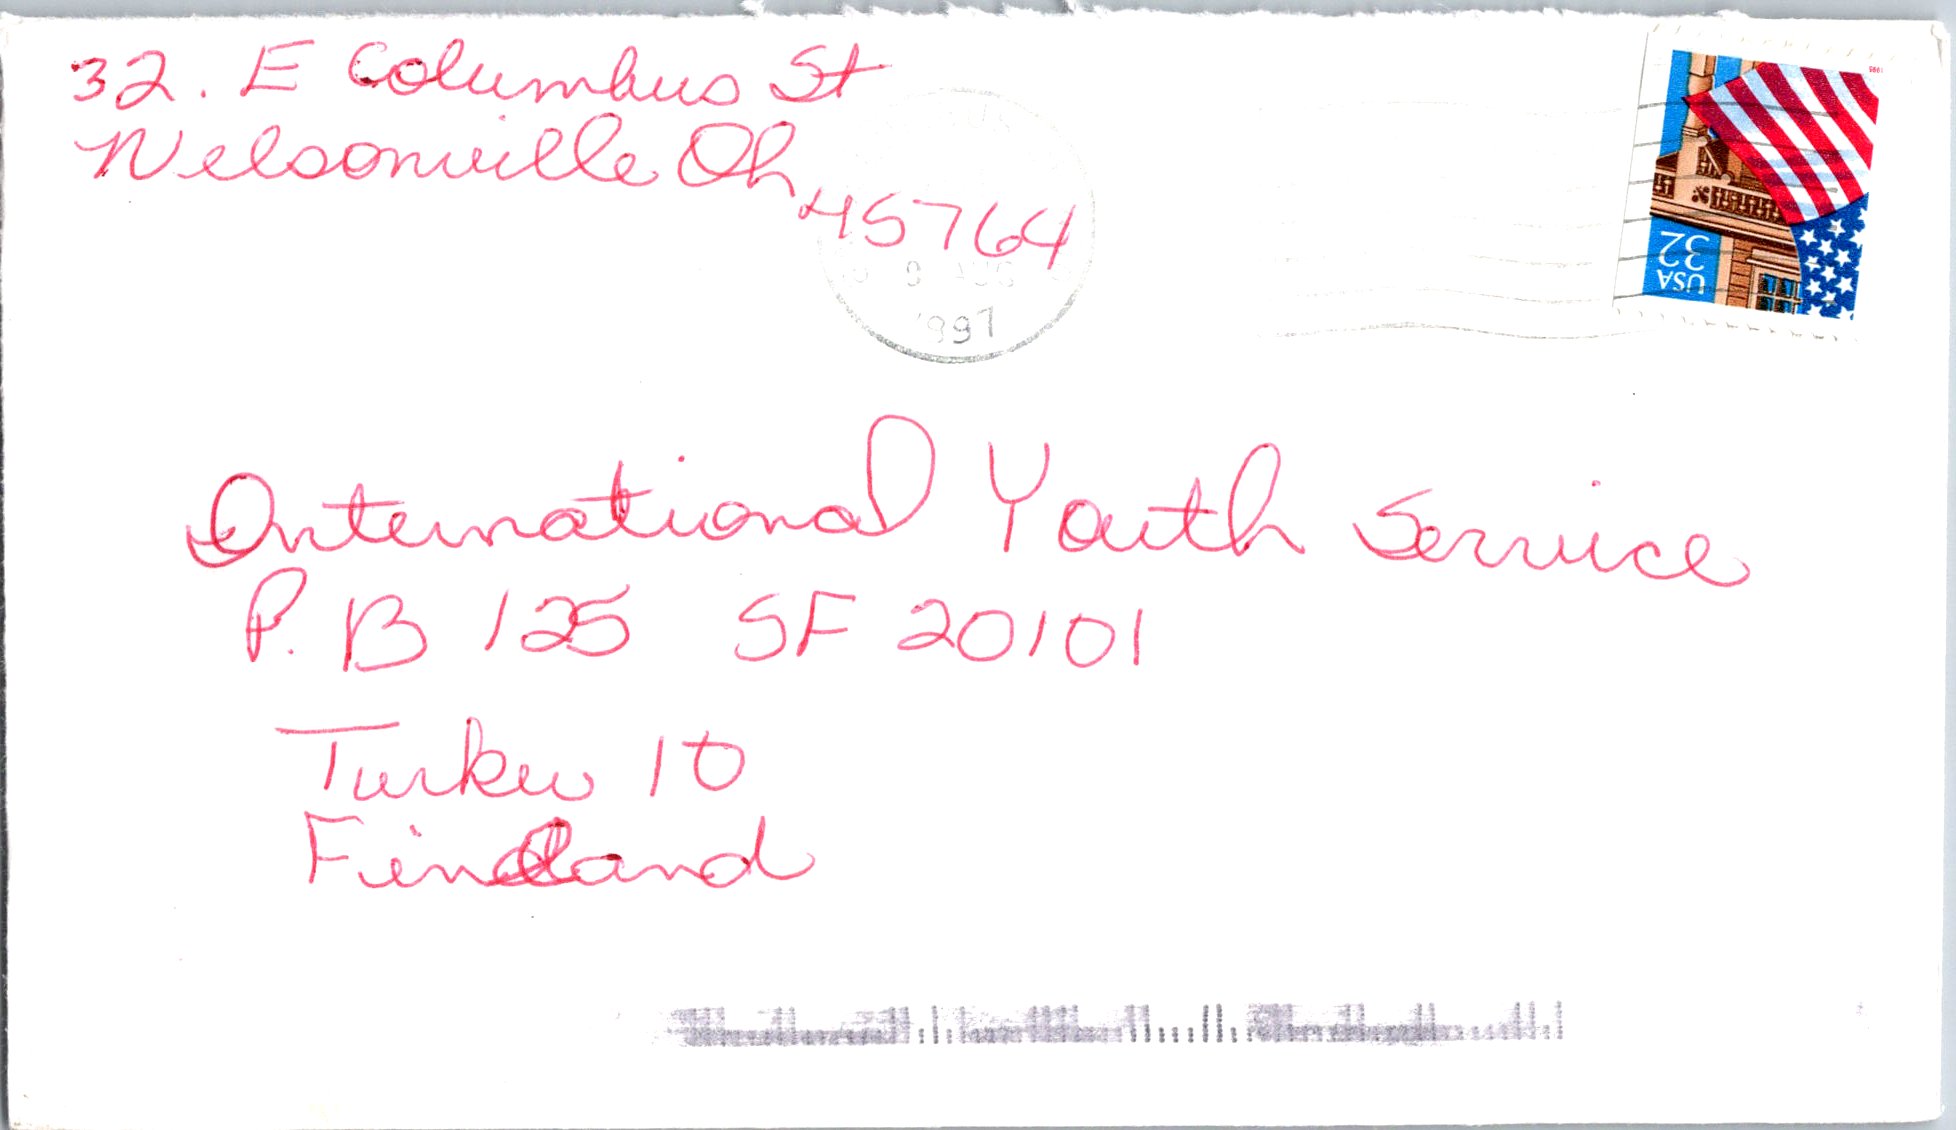 32. E Columbus St
Nelsonville Oh
45764
9 AUG
1997
1995
USA
32
International Youth Service
P. B 125 SF 20101
Turku 10
Finland